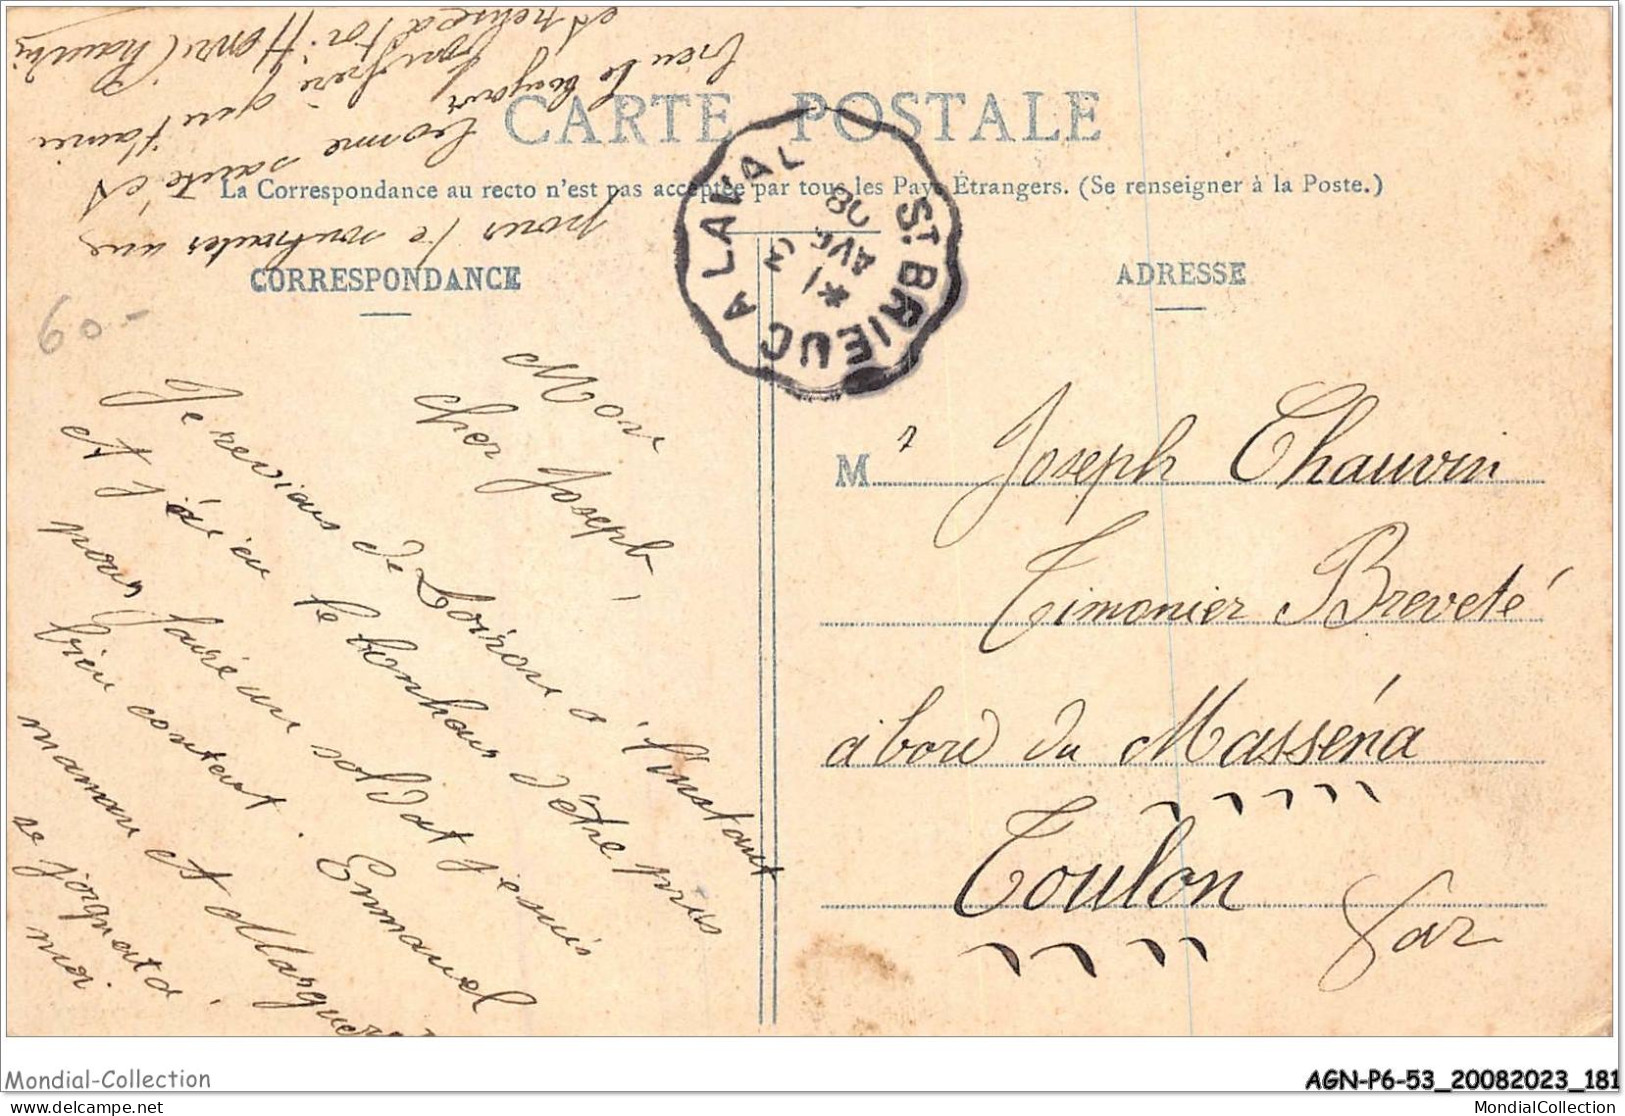 CARTE POSTALE
La Correspondance au recto n'est pas acceptée par tous les Pays Étrangers. (Se renseigner à la Poste.)
CORRESPONDANCE
ADRESSE
ST BRIEUC A LAVAL
*1
3
AVR
08
60-
Mon
cher Joseph,
Je reviens de Loiron à l'instant
et j'ai eu le bonheur d'être près
pour faire un soldat je suis
bien content. Emmanuel
maman et Marguerite
se joignent à
moi
pour te souhaiter une
bonne santé et
bien le bonjour
ton frère qui t'aime
Henri Chauvin
M r Joseph Chauvin
Timonier Breveté
à bord du Masséna
Toulon
Var
Mondial-Collection
AGN-P6-53_20082023_181
delcampe.net
MondialCollection